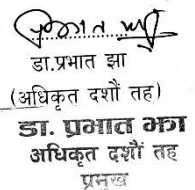 डा.प्रभात झा
(अधिकृत दशौं तह)
डा. प्रभात झा
अधिकृत दशौं तह
प्रमुख